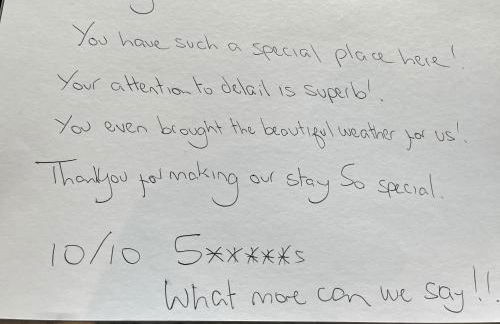 You have such a special place here!
Your attention to detail is superb!
You even brought the beautiful weather for us!
Thankyou for making our stay So special.
10/10 5*****s
What more can we say!!